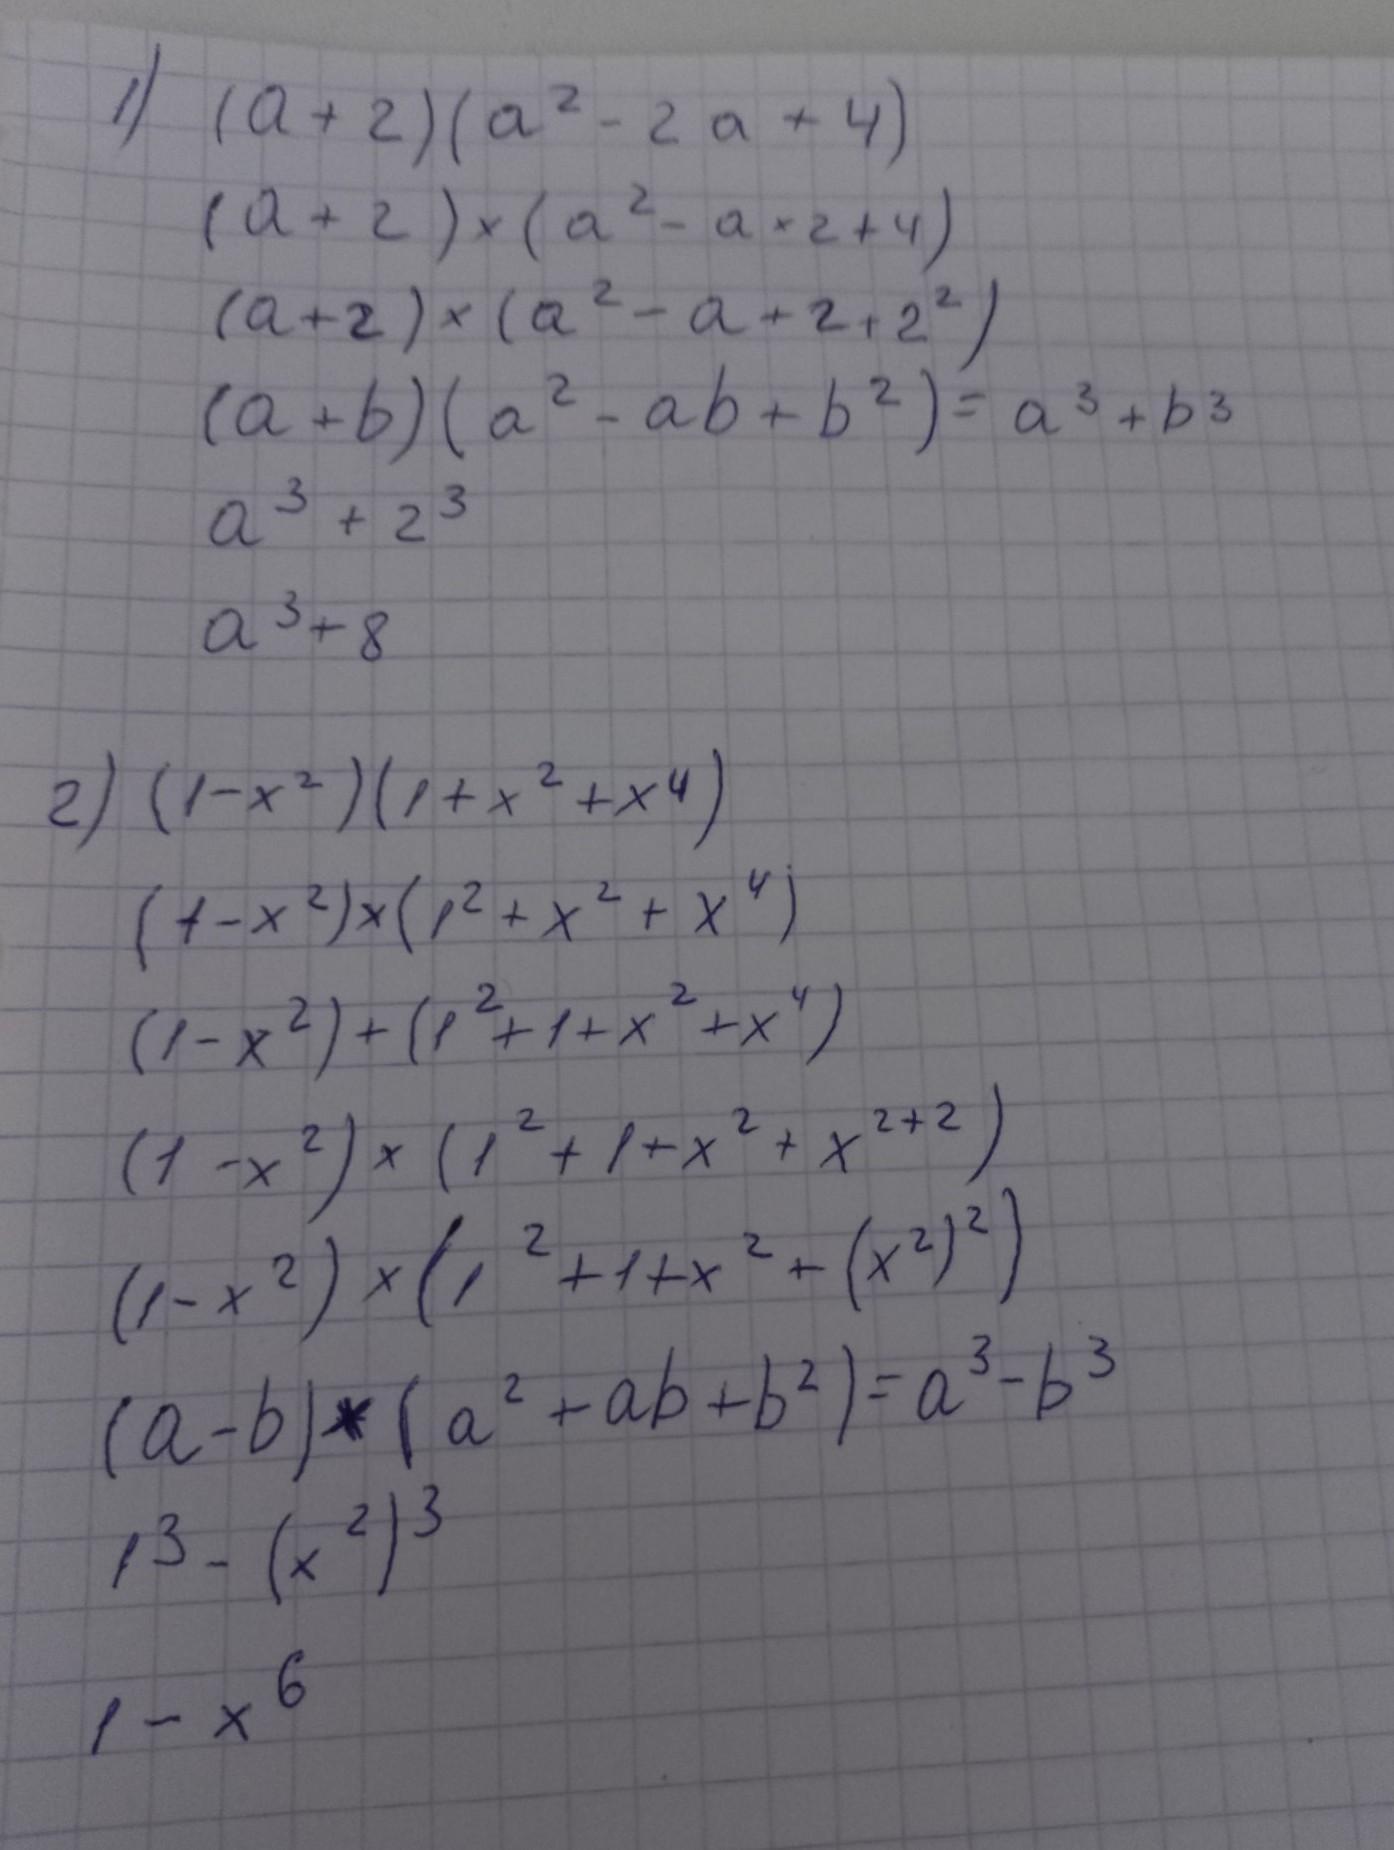 1) (a + 2)(a² - 2a + 4)
(a + 2) × (a² - a × 2 + 4)
(a + 2) × (a² - a + 2 + 2²)
(a + b)(a² - ab + b²) = a³ + b³
a³ + 2³
a³ + 8
2) (1 - x²)(1 + x² + x⁴)
(1 - x²) × (1² + x² + x⁴)
(1 - x²) + (1² + 1 + x² + x⁴)
(1 - x²) × (1² + 1 + x² + x²⁺²)
(1 - x²) × (1² + 1 + x² + (x²)²)
(a - b) × (a² + ab + b²) = a³ - b³
1³ - (x²)³
1 - x⁶